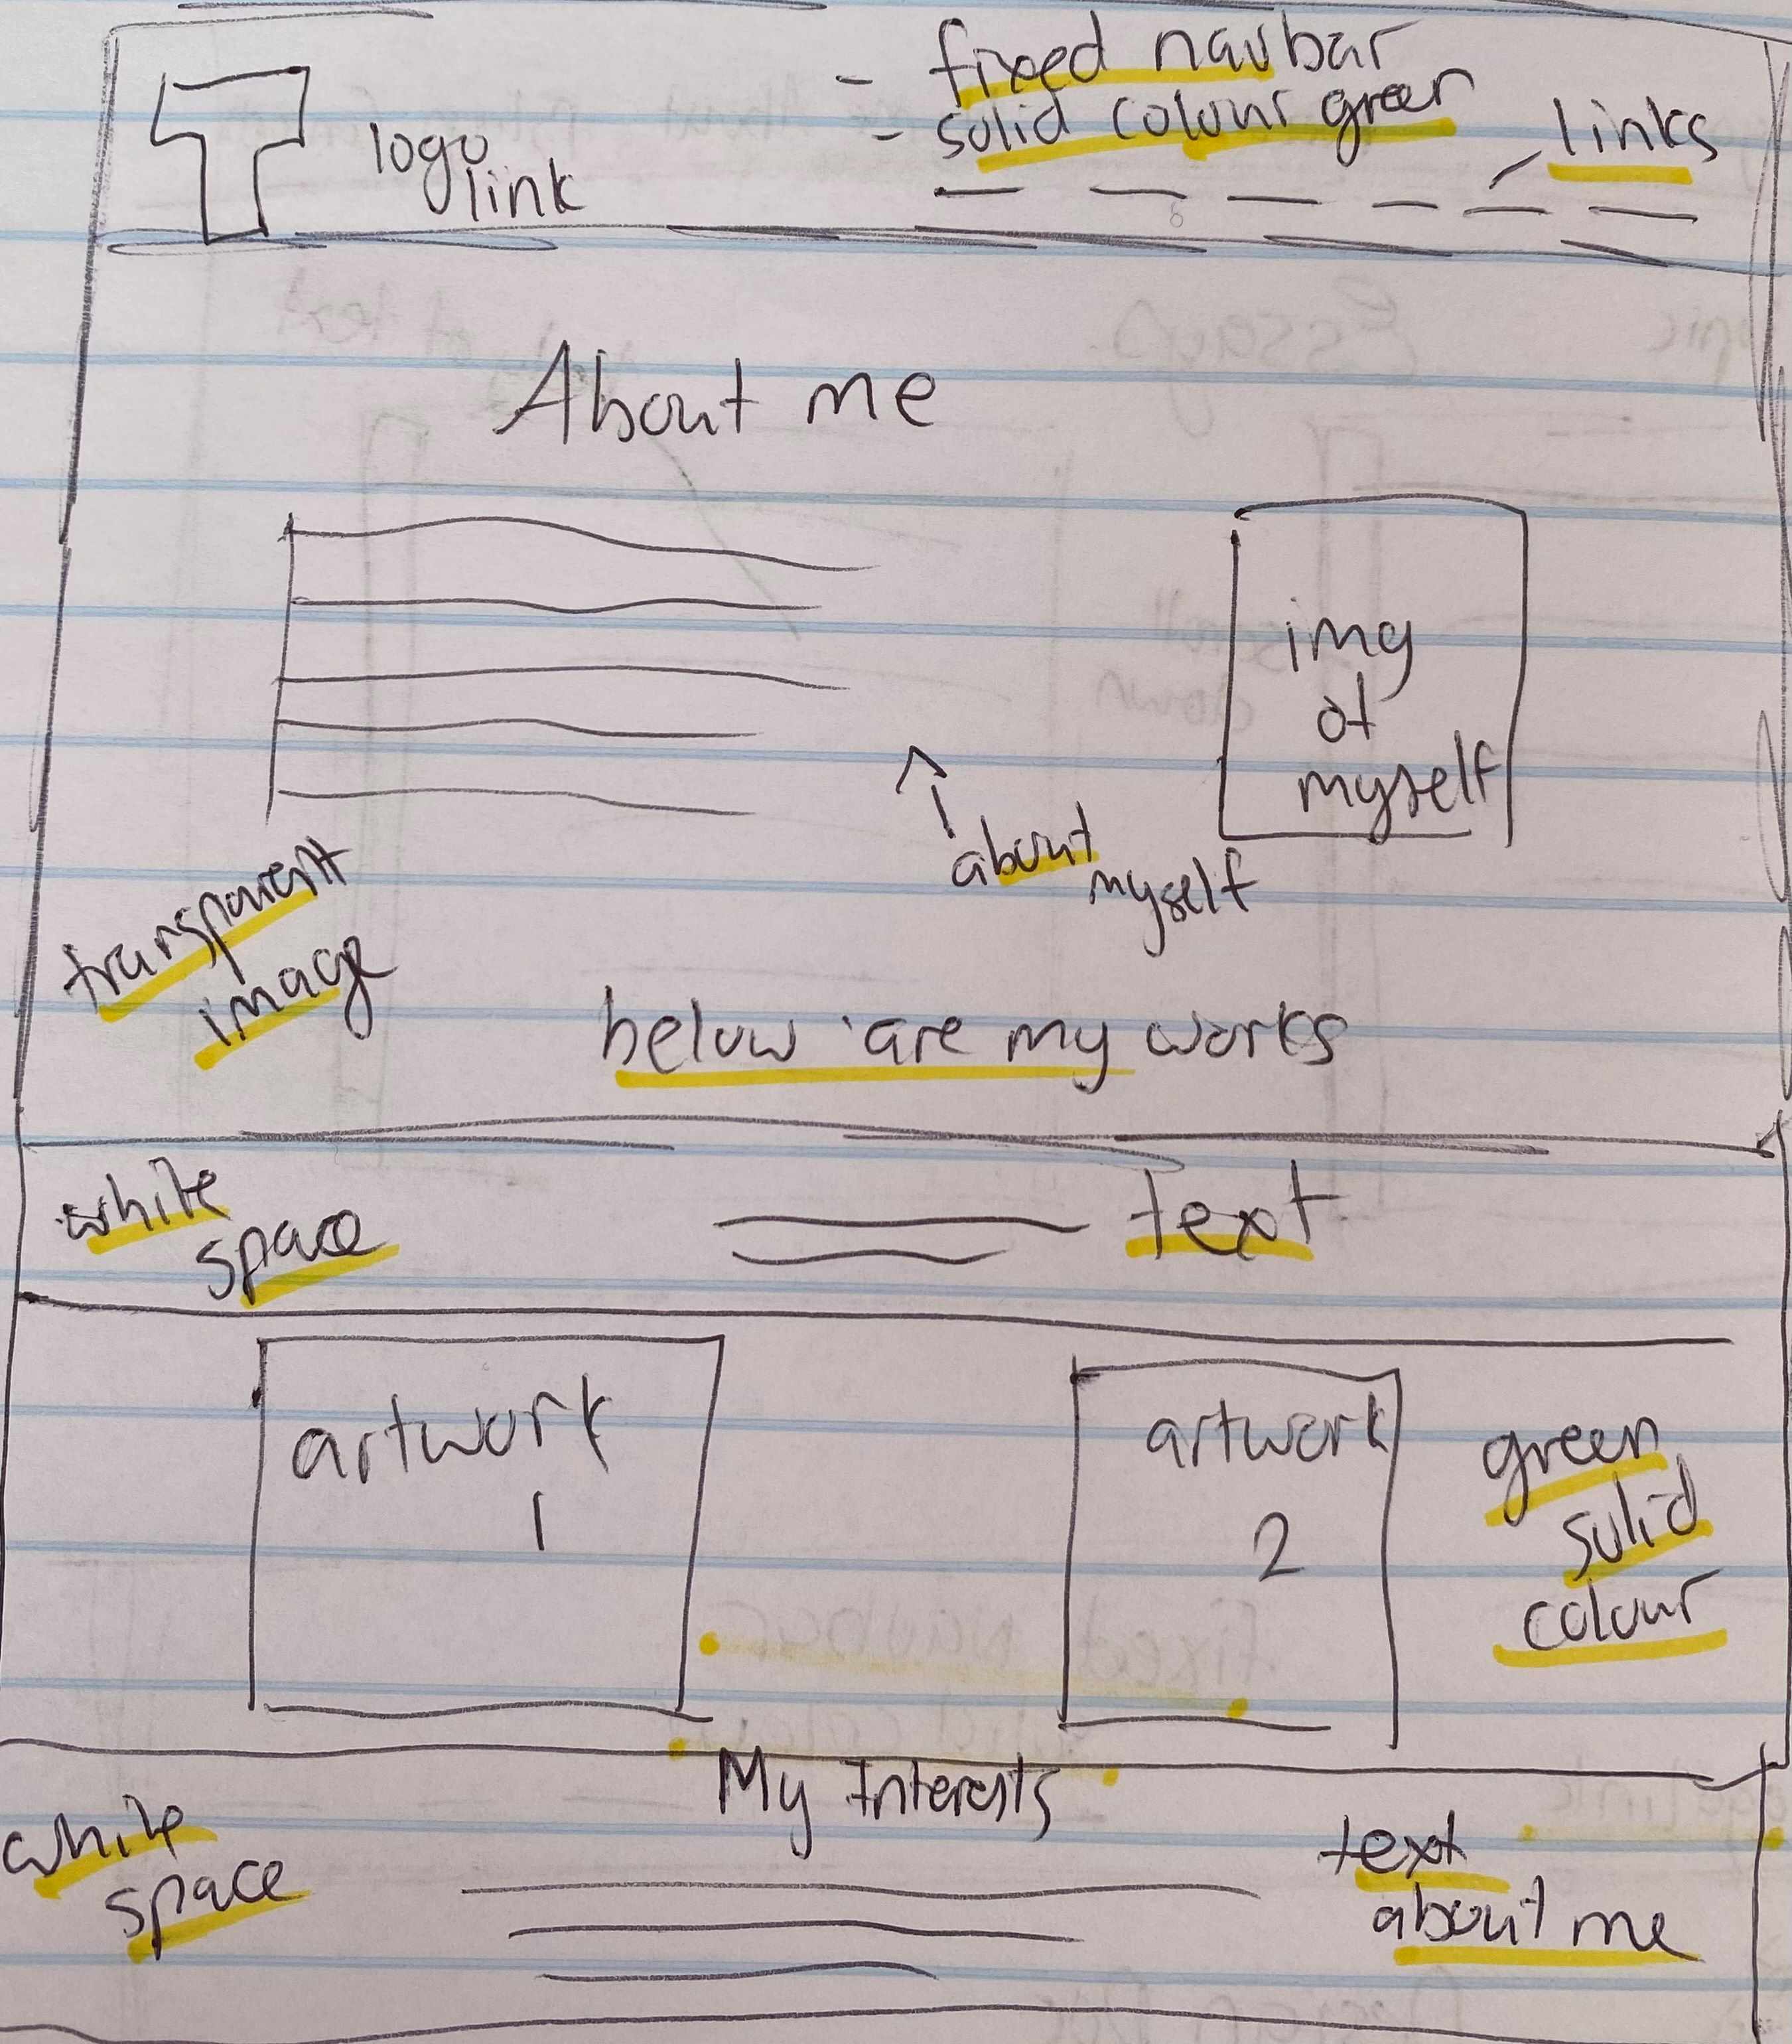 - fixed navbar
- solid colour green
links
logo
link
About me
img
of
myself
about
myself
transparent
image
below are my works
white
space
text
artwork
1
artwork
2
green
solid
colour
My Interests
white
space
text
about me